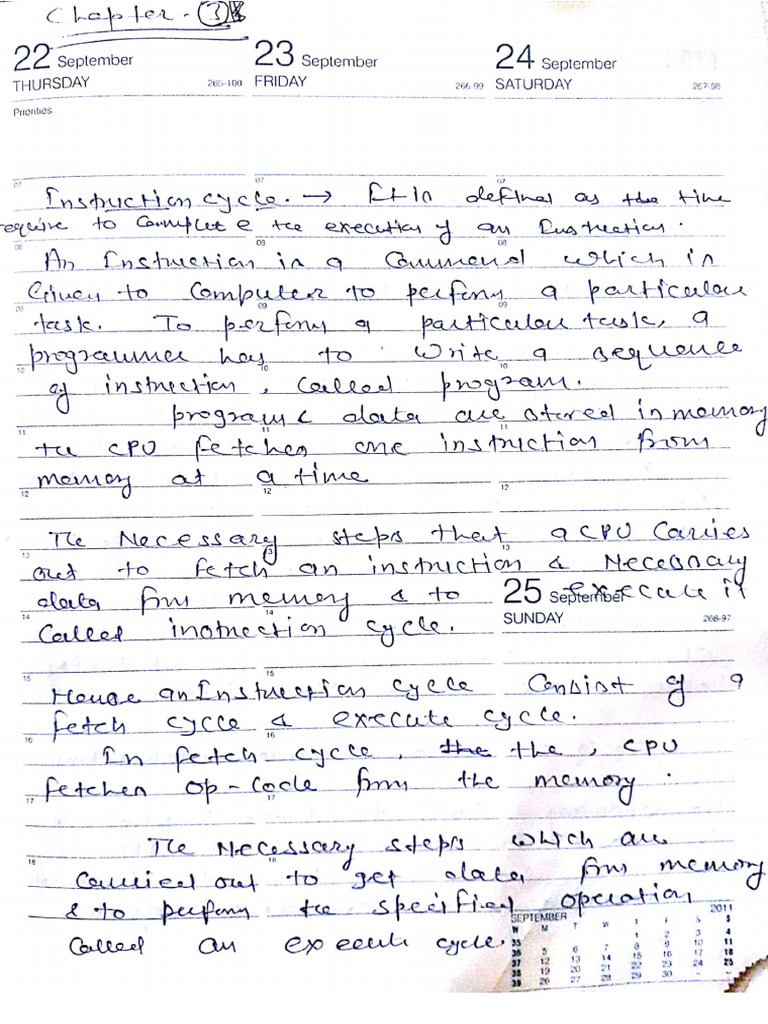 Chapter - 3
22 September 23 September 24 September
THURSDAY 265-100 FRIDAY 266-99 SATURDAY 267-98
Priorities
07 07 07
Instruction cycle. → It is defined as the time
require to complete the execution of an Instruction.
08 09 08
An Instruction is a Command which is
Given to Computer to perform a particular
09 09 09
task. To perform a particular task, a
programmer has to write a sequence
10 10 10
of instruction, called program.
program & data are stored in memory
11 11 11
the CPU fetches one instruction from
memory at a time
12 12 12
The Necessary steps that a CPU Carries
13 13 13
out to fetch an instruction & Necessary
data from memory & to execute it
25 September
14 14
SUNDAY 268-97
Called instruction cycle.
15 15
Hence an Instruction cycle Consist of a
fetch cycle & execute cycle.
16 16
In fetch cycle, the the, CPU
fetches op-code from the memory.
17 17
The Necessary steps which are
18 18
Carried out to get data from memory
& to perform the specified operation
Called an execute cycle.
SEPTEMBER 2011
W M T W T F S S
35 1 2 3 4
36 5 6 7 8 9 10 11
37 12 13 14 15 16 17 18
38 19 20 21 22 23 24 25
39 26 27 28 29 30 - -